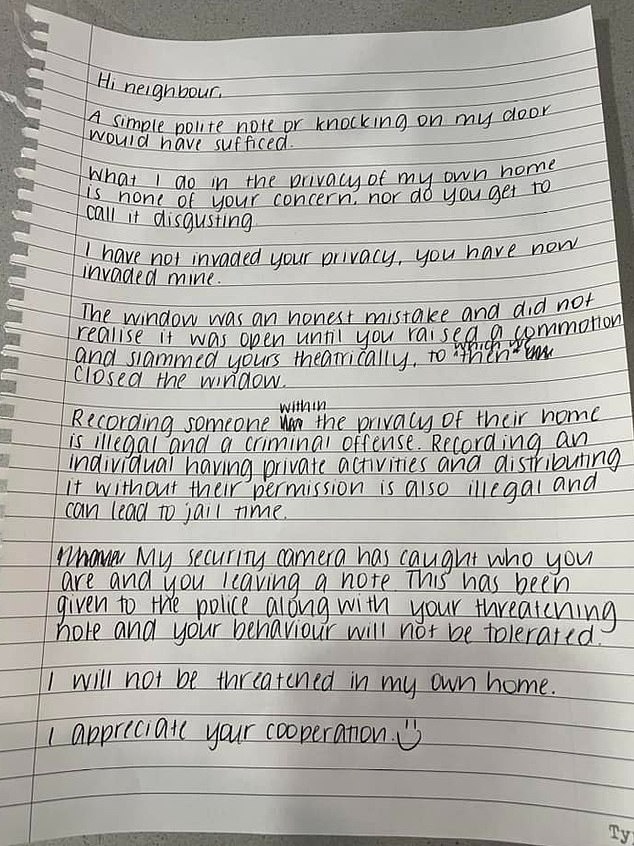 Hi neighbour,
A simple polite note or knocking on my door
would have sufficed.
What I do in the privacy of my own home
is none of your concern, nor do you get to
call it disgusting
I have not invaded your privacy, you have now
invaded mine.
The window was an honest mistake and did not
realise it was open until you raised a commotion
and slammed yours theatrically, to which we then
closed the window.
Recording someone within the privacy of their home
is illegal and a criminal offense. Recording an
individual having private activities and distributing
it without their permission is also illegal and
can lead to jail time.
My security camera has caught who you
are and you leaving a note. This has been
given to the police along with your threatening
note and your behaviour will not be tolerated.
I will not be threatened in my own home.
I appreciate your cooperation.